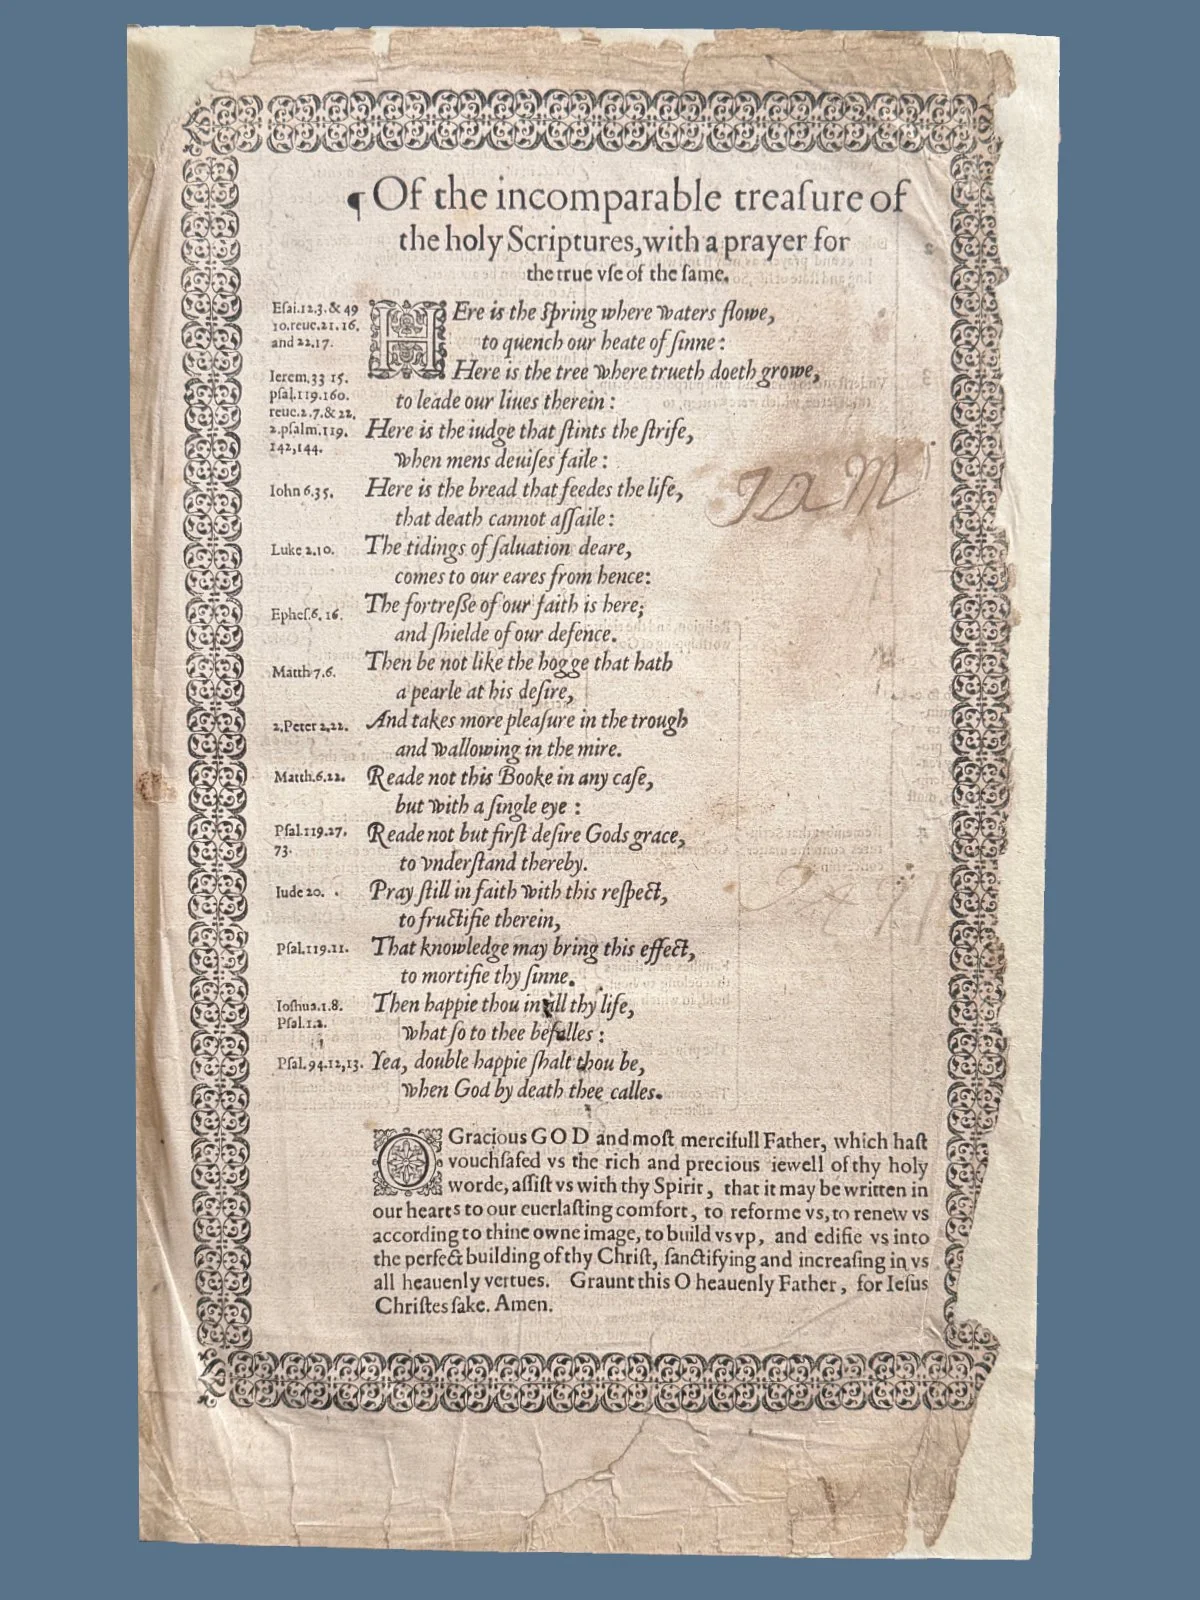 ¶ Of the incomparable treaſure of
the holy Scriptures, with a prayer for
the true vſe of the ſame.
Eſai.12.3. & 49
10.reue.21.16.
and 22.17.
HEre is the Spring where waters flowe,
to quench our heate of ſinne:
Here is the tree where trueth doeth growe,
Ierem.33 15.
pſal.119.160.
reue.2.7.& 22,
to leade our liues therein:
2.pſalm.119.
142,144.
Here is the iudge that ſtints the ſtrife,
when mens deuiſes faile:
Iohn 6.35.
Here is the bread that feedes the life,
that death cannot aſſaile:
Luke 2.10.
The tidings of ſaluation deare,
comes to our eares from hence:
Epheſ.6.16.
The fortreße of our faith is here,
and ſhielde of our defence.
Matth 7.6.
Then be not like the hogge that hath
a pearle at his deſire,
2.Peter 2.22.
And takes more pleaſure in the trough
and wallowing in the mire.
Matth.6.22.
Reade not this Booke in any caſe,
but with a ſingle eye:
Pſal.119.27.
73.
Reade not but firſt deſire Gods grace,
to vnderſtand thereby.
Iude 20.
Pray ſtill in faith with this reſpect,
to fructifie therein,
Pſal.119.11.
That knowledge may bring this effect,
to mortifie thy ſinne.
Ioſhua.1.8.
Pſal.1.2.
Then happie thou in all thy life,
what ſo to thee befalles:
Pſal.94.12,13.
Yea, double happie ſhalt thou be,
when God by death thee calles.
O Gracious GOD and moſt mercifull Father, which haſt
vouchſafed vs the rich and precious iewell of thy holy
worde, aſſiſt vs with thy Spirit, that it may be written in
our hearts to our euerlaſting comfort, to reforme vs, to renew vs
according to thine owne image, to build vs vp, and edifie vs into
the perfect building of thy Chriſt, ſanctifying and increaſing in vs
all heauenly vertues. Graunt this O heauenly Father, for Ieſus
Chriſtes ſake. Amen.